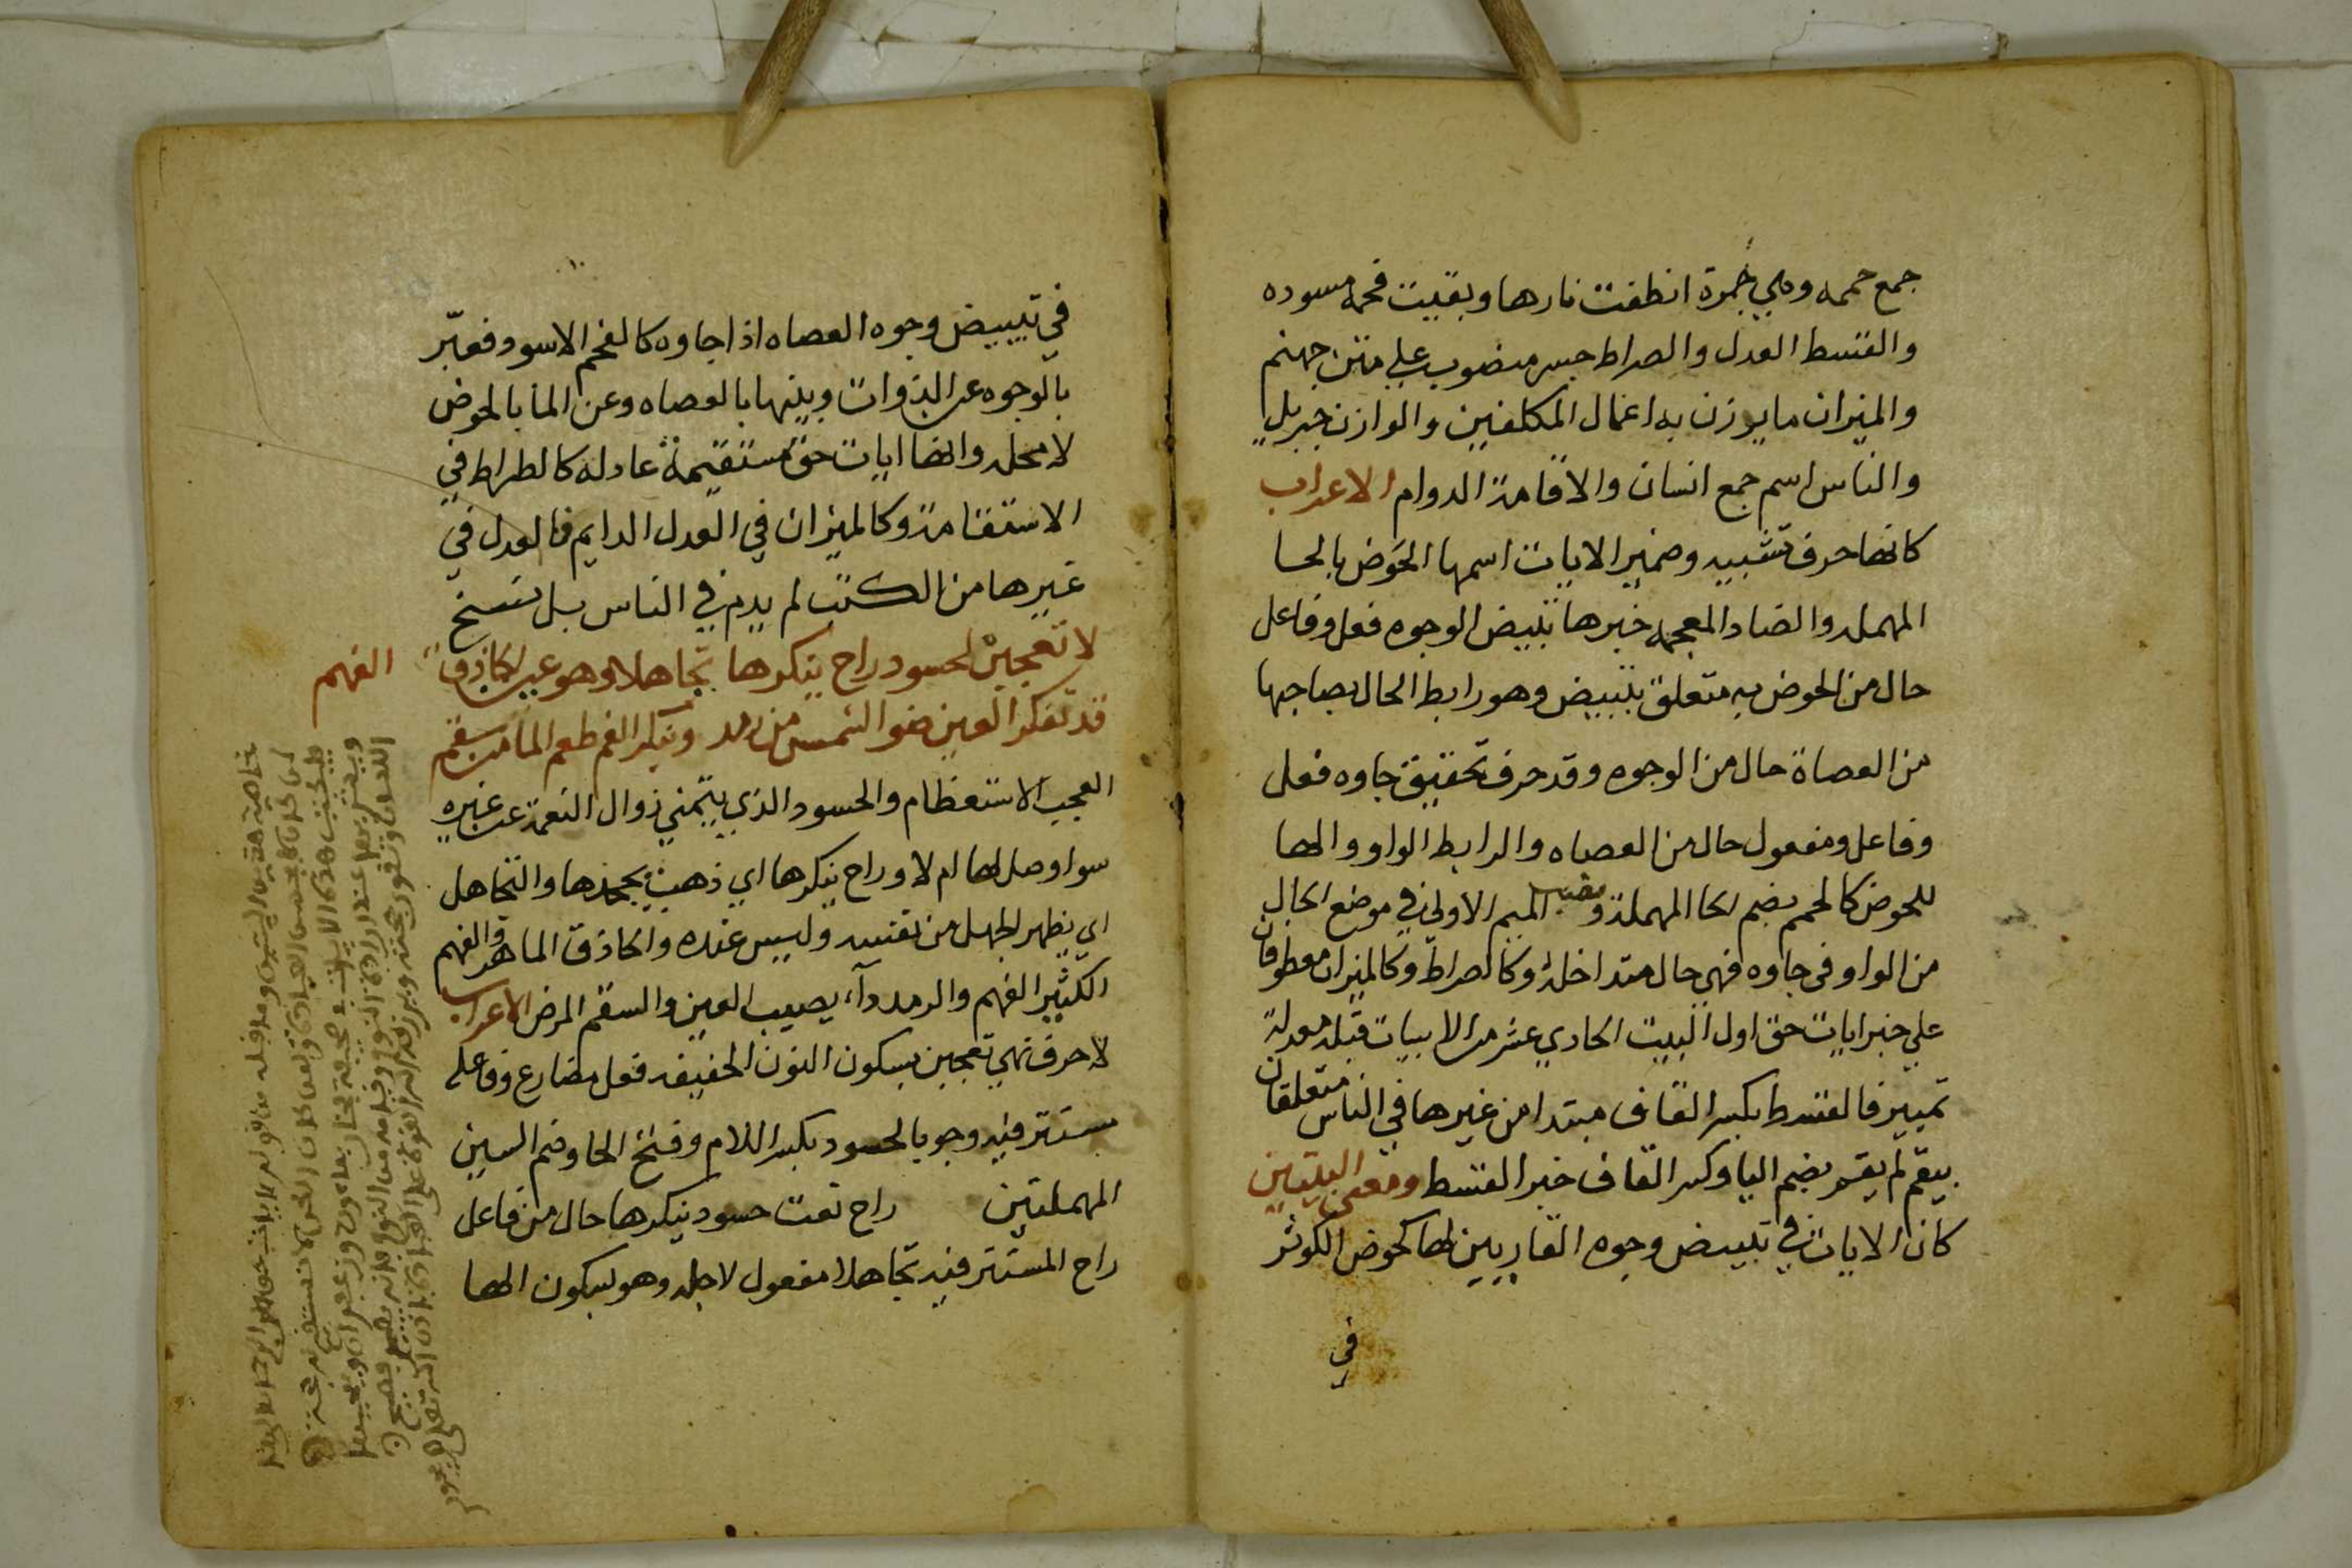 جمع حممه وهي جمرة انطفت نارها وبقيت فحمه مسوده
والقسط العدل والصراط جسر منصوب علي متن جهنم
والميزان ما يوزن به اعمال المكلفين والوازن جبريل
والناس اسم جمع انسان والاقامة الدوام الاعراب
كانها حرف تشبيه وضمير الايات اسمها الحوض بالحا
المهمله والضاد المعجمه خبرها تبيض الوجوه فعل وفاعل
حال من الحوض به متعلق بتبيض وهو رابط الحال بصاحبها
من العصاة حال من الوجوه وقد حرف تحقيق جاوه فعل
وفاعل ومفعول حال من العصاه والرابط الواو والها
للحوض كالحمم بضم الحا المهملة وفتح الميم الاولي في موضع الحال
من الواو في جاوه فهي حال متداخلة وكالصراط وكالميزان معطوفان
علي خبر ايات حق اول البيت الحادي عشر من الابيات قبله معدلة
تمييز فالقسط بكسر القاف مبتدا من غيرها في الناس متعلقان
بيقم لم يقم بضم اليا وكسر القاف خبر القسط ومعني البيتين
كان الايات في تبييض وجوه القاريين لها كحوض الكوثر
في
في تبييض وجوه العصاه اذا جاوه كالفحم الاسود فعبّر
بالوجوه عن الذوات وبينها بالعصاه وعن الما بالحوض
لا محله وانها ايات حق مستقيمة عادله كالطراط في
الاستقامة وكالميزان في العدل الدايم فالعدل في
غيرها من الكتب لم يدم في الناس بل نسخ
لا تعجبن لحسود راح ينكرها تجاهلا وهو عين الحاذق الفهم
قد تنكر العين ضو الشمس من رمد وينكر الفم طعم الما من سقم
العجب الاستعظام والحسود الذي يتمني زوال النعمة عن غيره
سوا وصل لها ام لا وراح ينكرها اي ذهب يجحدها والتجاهل
اي يظهر الجهل من نفسه وليس عنده والحاذق الماهر والفهم
الكثير الفهم والرمد دآء يصيب العين والسقم المرض الاعراب
لا حرف نهي تعجبن بسكون النون الخفيفه فعل مضارع وفاعله
مستتر فيه وجوبا لحسود بكسر اللام وفتح الحا وضم السين
المهملتين راح نعت حسود ينكرها حال من فاعل
راح المستتر فيه تجاهلا مفعول لاجله وهو بسكون الها